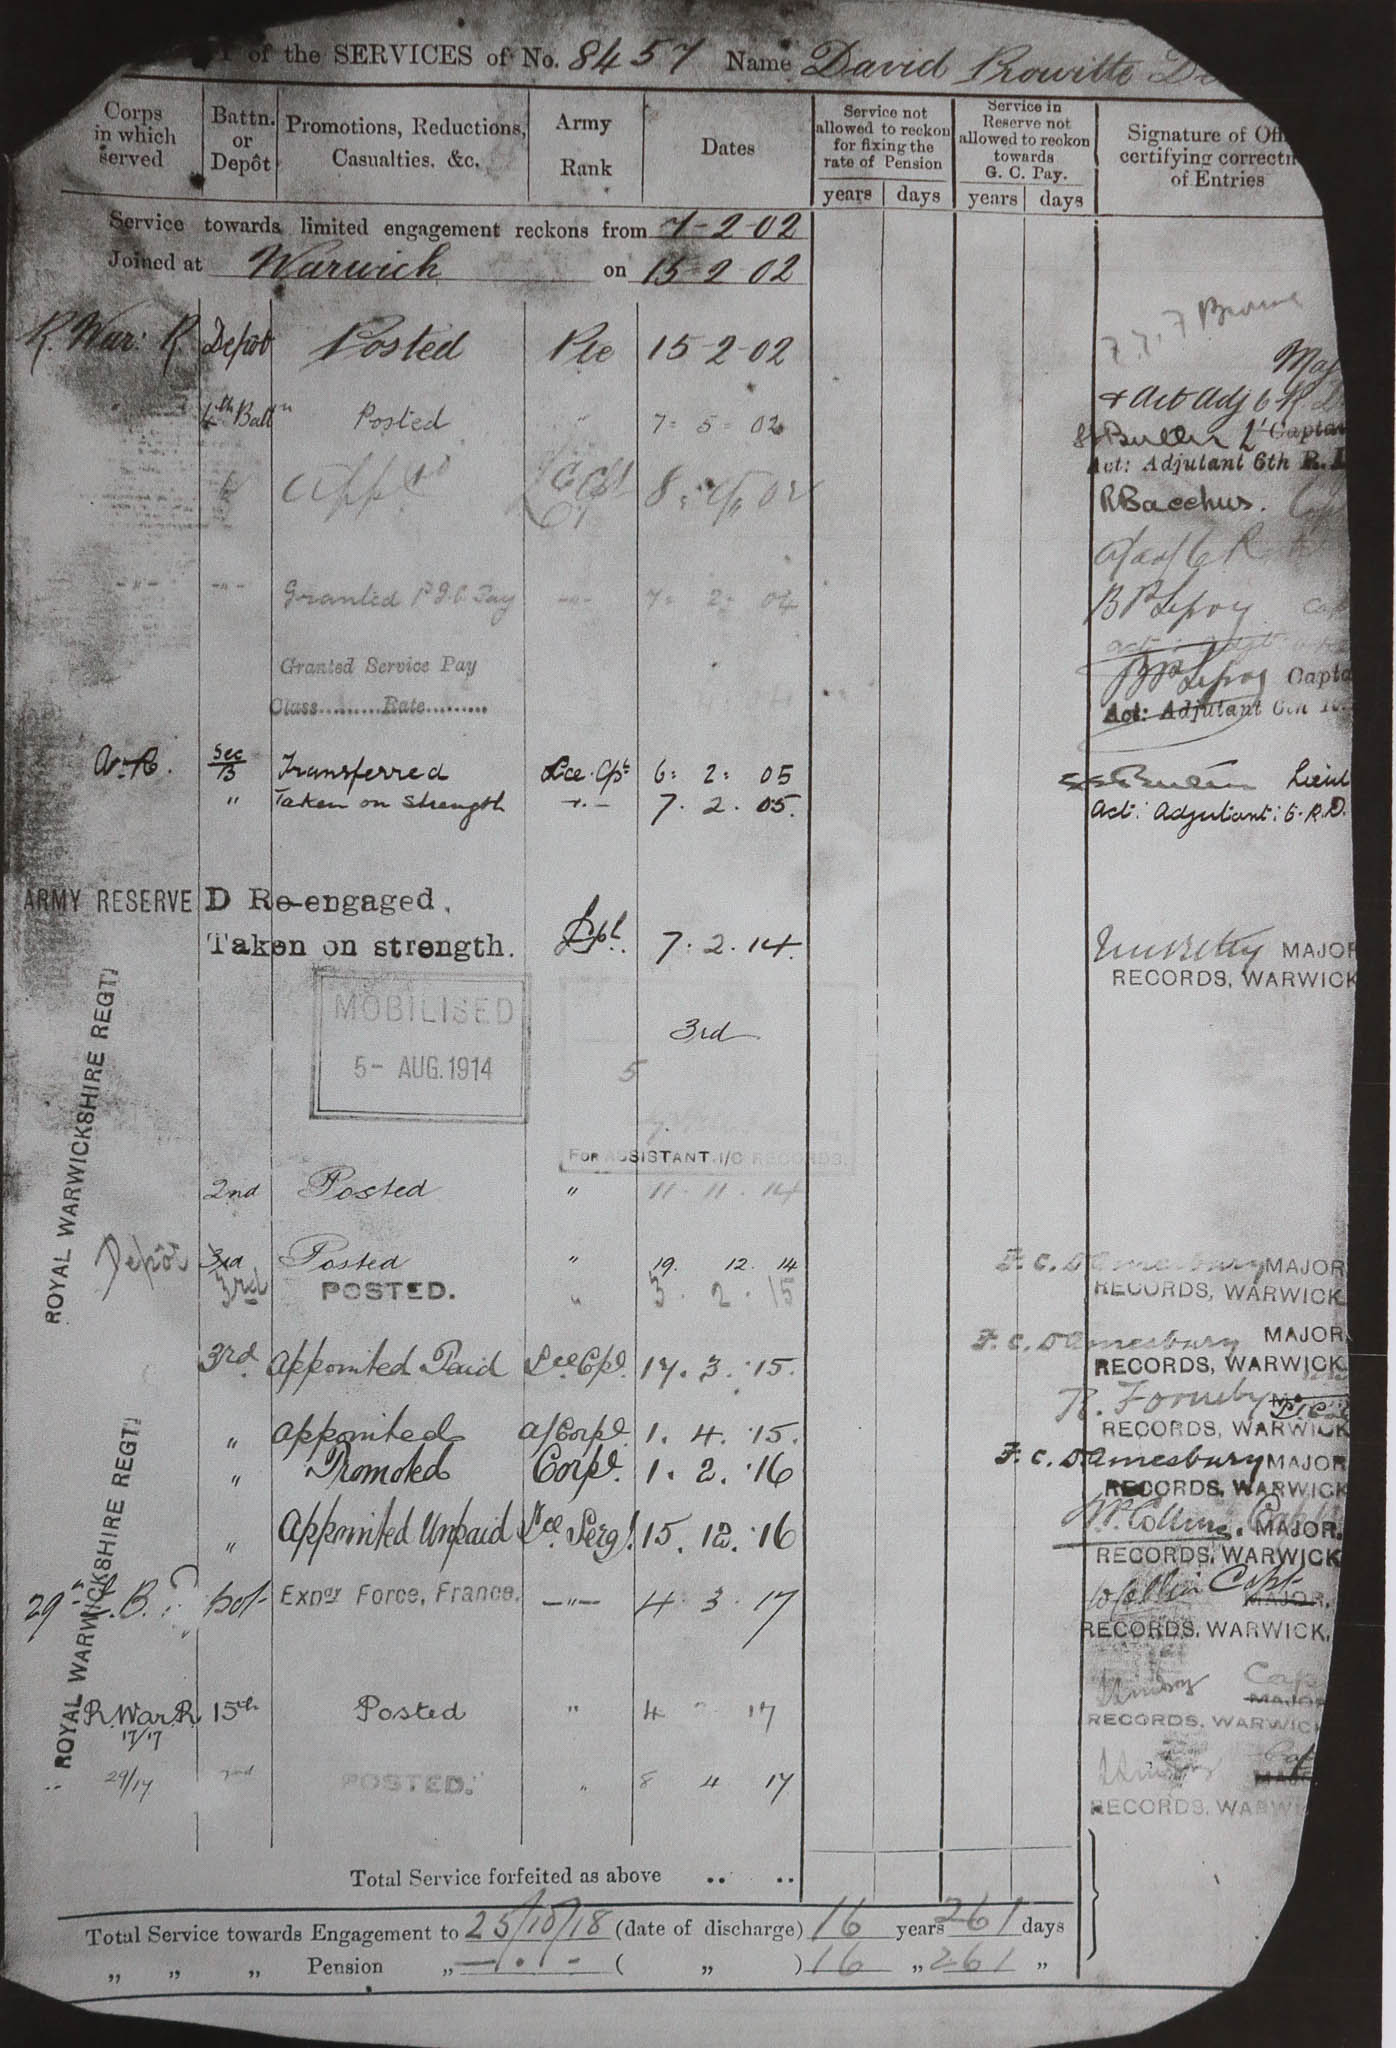 of the SERVICES of No. 8457 Name David Prowitte
Corps in which served
Battn. or Depôt
Promotions, Reductions, Casualties, &c.
Army Rank
Dates
Service not allowed to reckon for fixing the rate of Pension
years days
Service in Reserve not allowed to reckon towards G. C. Pay.
years days
Signature of Offi
certifying correctn
of Entries
Service towards limited engagement reckons from 7-2-02
Joined at Warwick on 15-2-02
R. War: R Depôt Posted Pte 15-2-02
Maj
+ Act Adj 6 R.
" Battn Posted " 7=5=02
Butler Lt Captain
Act: Adjutant 6th R.
App 8 02
RBacchus.
-"- -"- Granted G.C. Pay -"- 7= 2= 04
Granted Service Pay
Class.........Rate.........
Capta
Act: Adjutant 6th R.
A.R. Sec B Transferred Lce. Cpt 6: 2: 05 Lieut
" Taken on strength -"- 7. 2. 05. Act: Adjutant: 6. R.D.
ARMY RESERVE D Re-engaged.
Taken on strength. 7. 2. 14. MAJOR
RECORDS, WARWICK
ROYAL WARWICKSHIRE REGT
MOBILISED
5- AUG. 1914
3rd
5
FOR ASSISTANT. I/C RECORDS.
2nd Posted " 11. 11. 14
Depôt 3rd Posted " 19. 12. 14 MAJOR
3rd POSTED. " 3. 2. 15 RECORDS, WARWICK
3rd Appointed Paid Lce Cpl. 17. 3. 15. F. C. D'Amesbury MAJOR
RECORDS, WARWICK
" Appointed A/Corpl. 1. 4. 15. R.
RECORDS, WARWICK
" Promoted Corpl. 1. 2. 16 F. C. D'Amesbury MAJOR
RECORDS, WARWICK
" Appointed Unpaid Lce Sergt. 15. 12. 16 Collins. Capt MAJOR.
RECORDS, WARWICK
ROYAL WARWICKSHIRE REGT
29th I.B.D. Expdy Force, France. -"- 4. 3. 17 Capt MAJOR.
RECORDS, WARWICK.
R. War. R. 15th Posted " 4 17 Cap MAJOR
17/17 RECORDS, WARWICK
" 29/17 2nd POSTED. " 8 4 17 Cap MAJ
RECORDS, WARW
Total Service forfeited as above .. ..
Total Service towards Engagement to 25/10/18 (date of discharge) 16 years 261 days
" " " Pension " - " - ( " ) 16 " 261 "